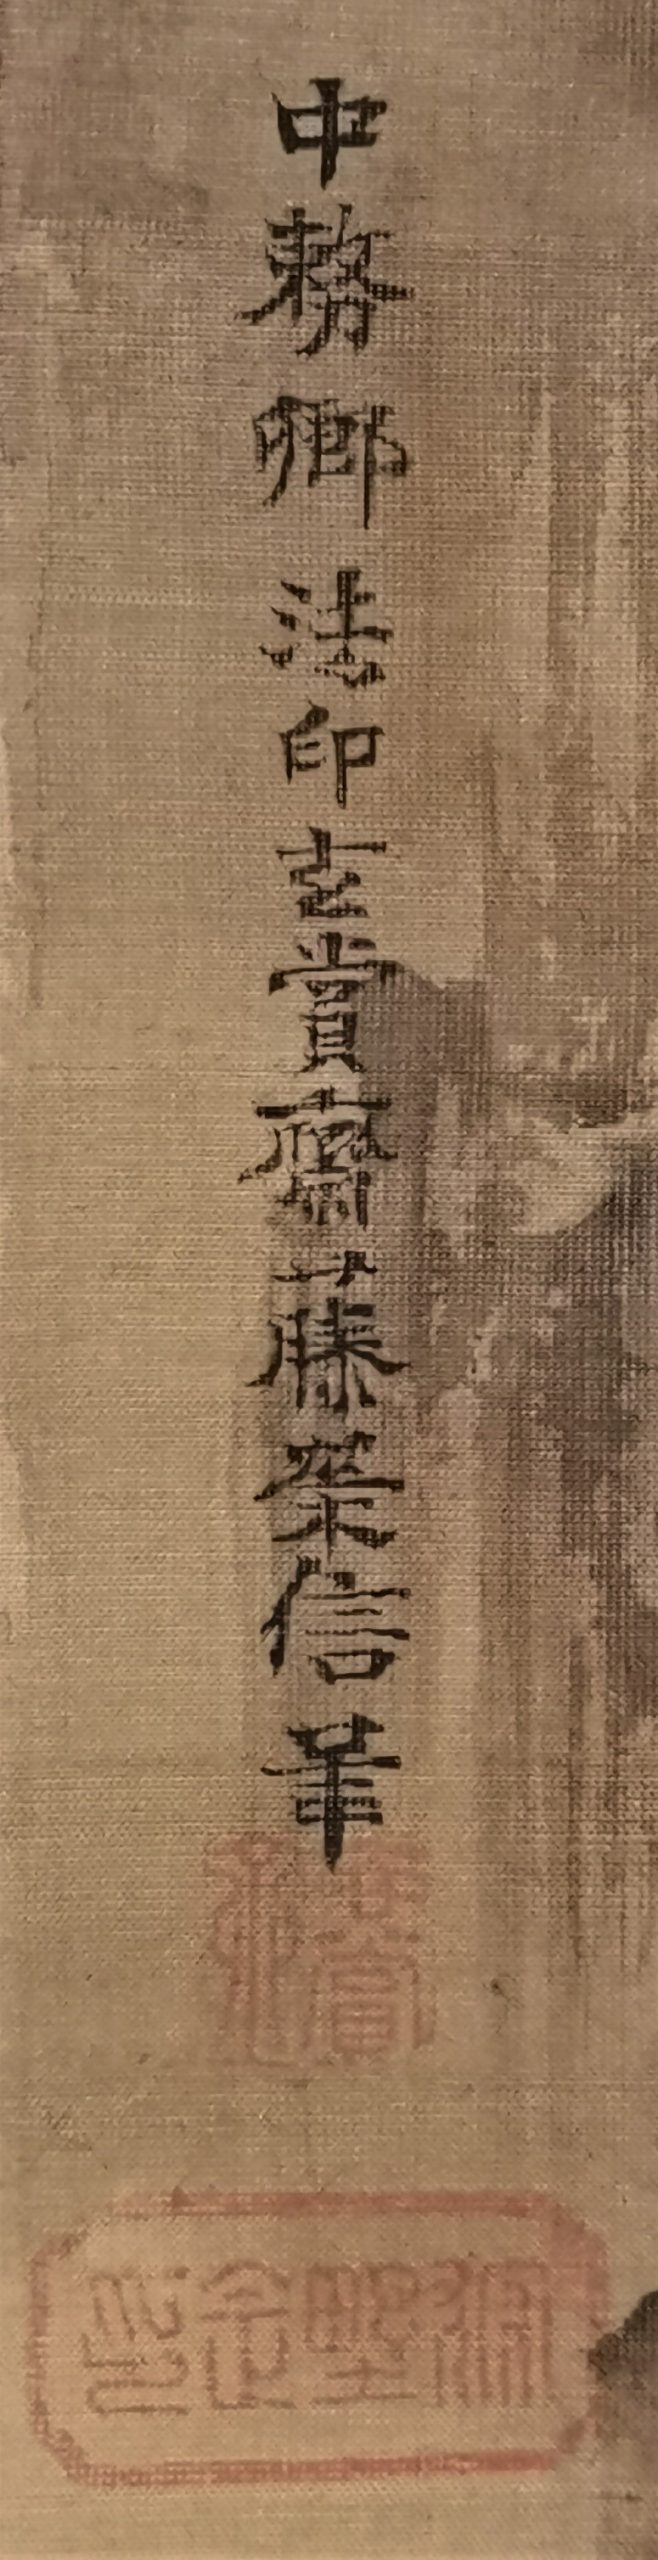 中務卿法印玄賞齋藤榮信筆